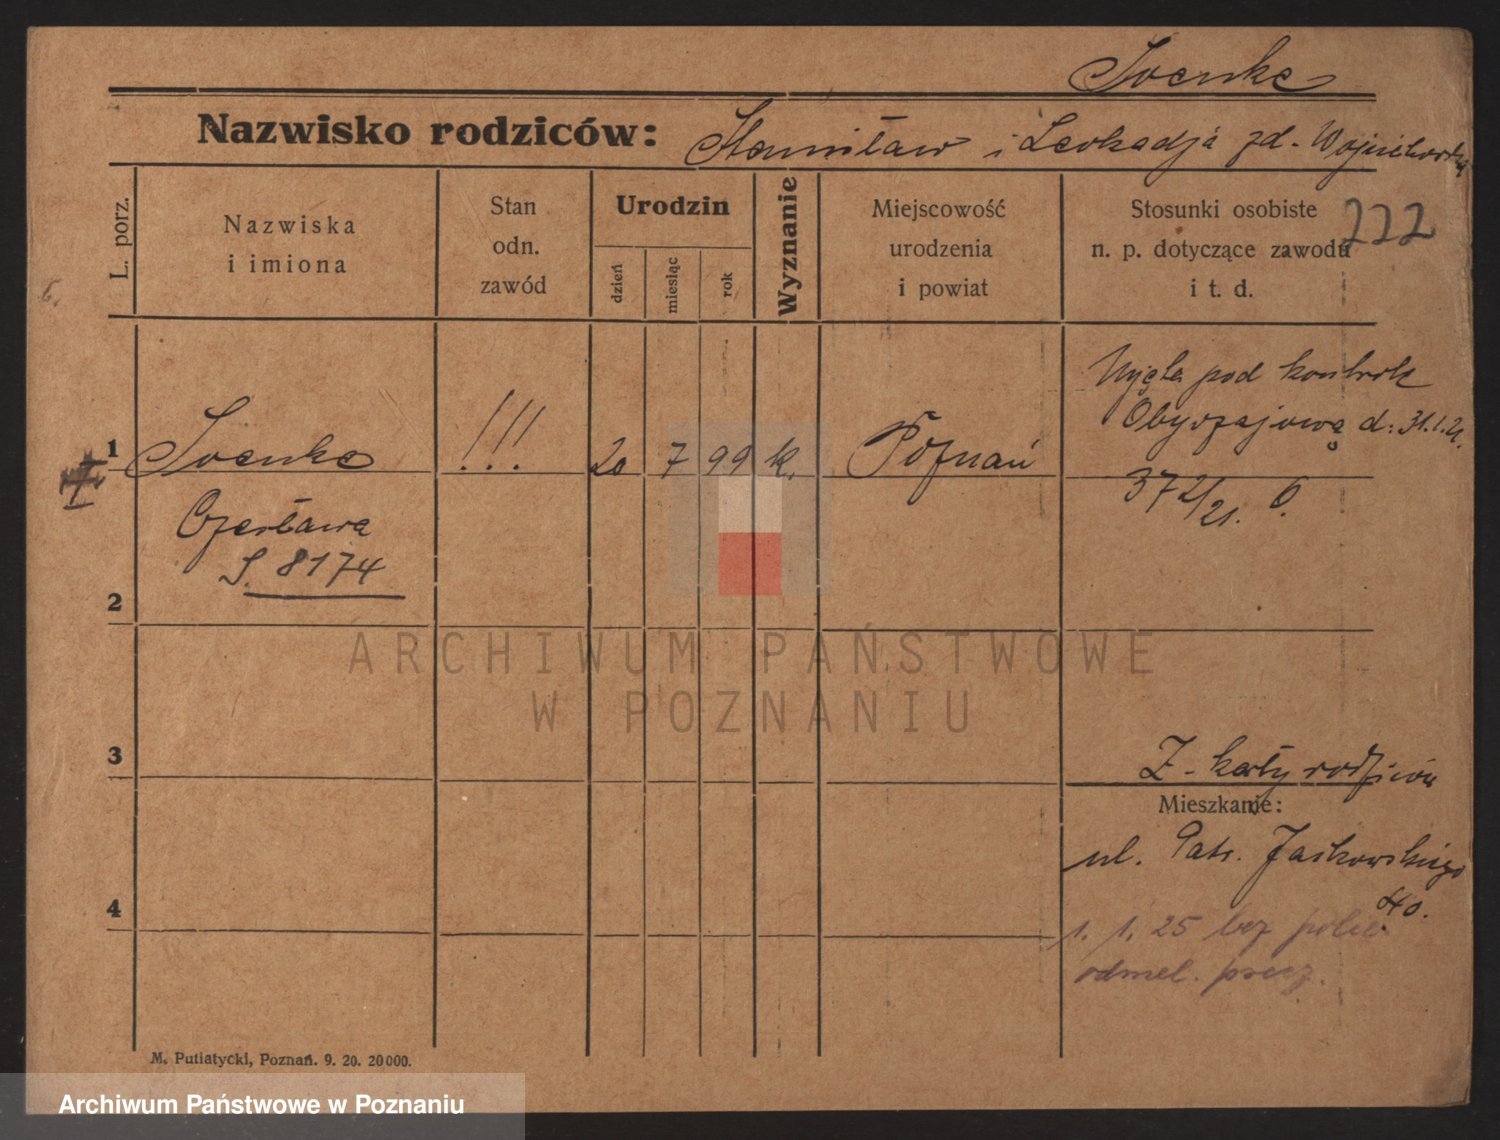 Nazwisko rodziców: Stanisław i Leokadja zd.
222
L. porz.
Nazwiska
i imiona
Stan
odn.
zawód
Urodzin
dzień
miesiąc
rok
Wyznanie
Miejscowość
urodzenia
i powiat
Stosunki osobiste
n. p. dotyczące zawodu
i t. d.
1
!!!
20 7 99 k.
Poznań
Wzięta pod kontrolę
Obyczajową d. 31.1.21.
372/21. 6.
Czesława
S. 8174
2
3
4
Z karty rodziców
Mieszkanie:
ul. Patr. Jackowskiego
40.
1. 1. 25 bez polic.
odmel.
M. Putiatycki, Poznań. 9. 20. 20000.
ARCHIWUM PAŃSTWOWE
W POZNANIU
Archiwum Państwowe w Poznaniu